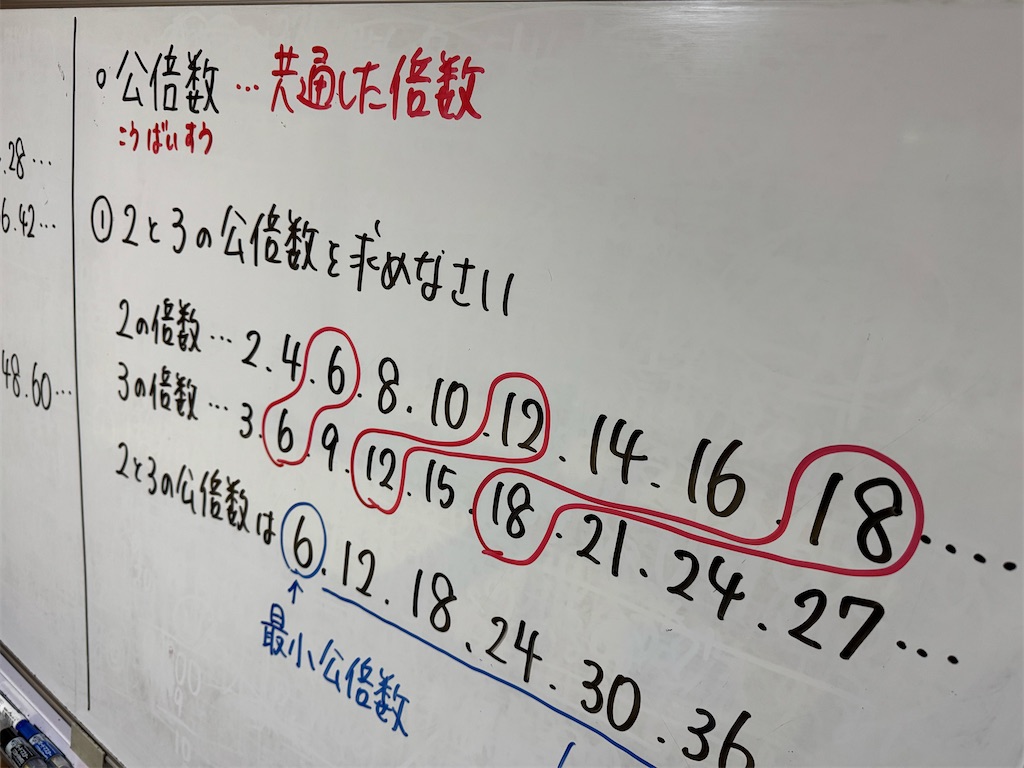 .28…
6.42…
48.60…
○公倍数…共通した倍数
こうばいすう
①2と3の公倍数を求めなさい
2の倍数…2.4.6.8.10.12.14.16.18.....
3の倍数…3.6.9.12.15.18.21.24.27...
2と3の公倍数は6.12.18.24.30.36
↑
最小公倍数